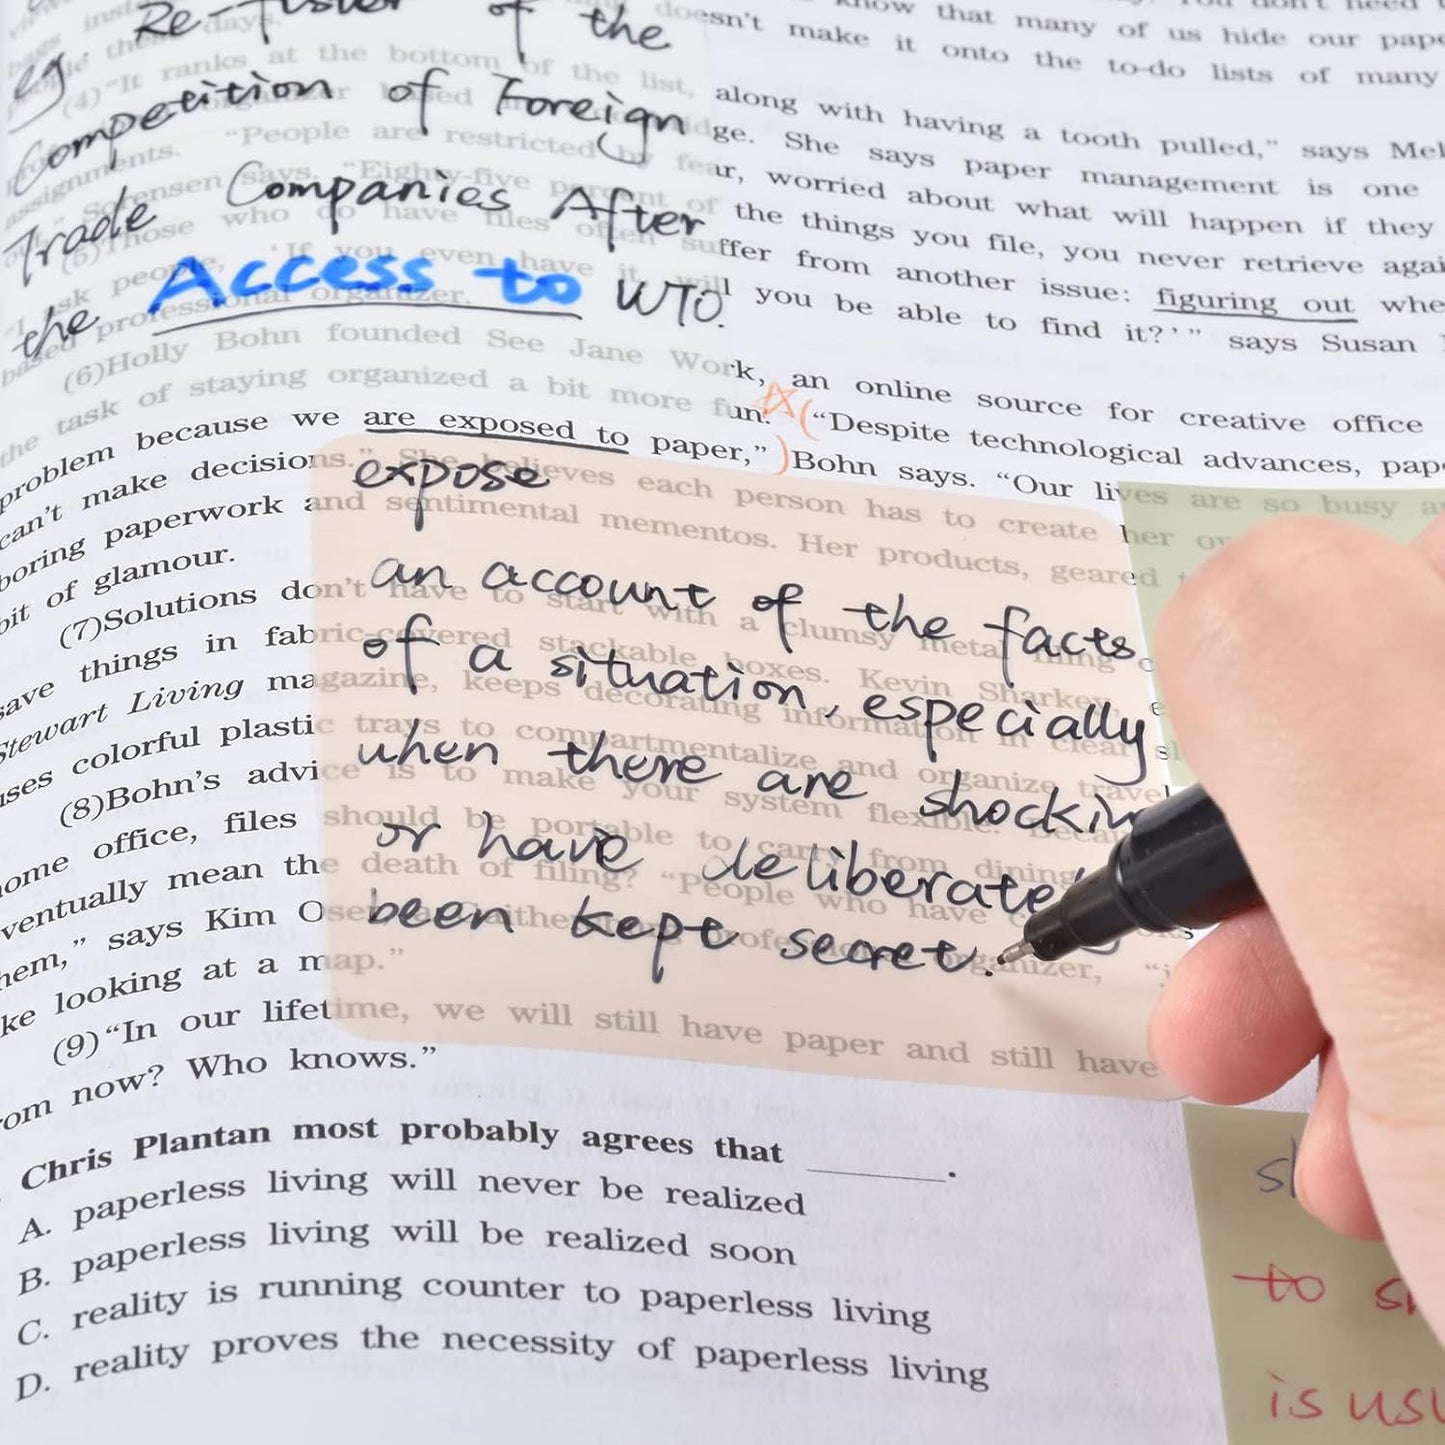 eg Re-fuster of the
Competition of Foreign
Trade Companies After
the Access to WTO.
know that many of us hide our
doesn't make it onto the to-do lists of many
(4)"It ranks at the bottom of the list, along with having a tooth pulled," says
She says paper management is one
assignments. "People are restricted by fear, worried about what will happen if they
Sorensen says. "Eighty-five percent of the things you file, you never retrieve
(5)Those who do have files often suffer from another issue: figuring out
"I ask people, 'If you even have it, will you be able to find it?'" says Susan
based professional organizer.
(6)Holly Bohn founded See Jane Work, an online source for creative office
the task of staying organized a bit more fun. ("Despite technological advances,
problem because we are exposed to paper,") Bohn says. "Our lives are so busy
can't make decisions." She believes each person has to create her
boring paperwork and sentimental mementos. Her products, geared
bit of glamour.
(7)Solutions don't have to start with a clumsy metal filing
save things in fabric-covered stackable boxes. Kevin Sharkey,
Stewart Living magazine, keeps decorating information in clear
uses colorful plastic trays to compartmentalize and organize
(8)Bohn's advice is to make your system flexible.
home office, files should be portable to carry from dining
eventually mean the death of filing? "People who have
them," says Kim professional organizer,
like looking at a map."
(9)"In our lifetime, we will still have paper and still have
from now? Who knows."
expose
an account of the facts
of a situation, especially
when there are
or have
been kept secret.
Chris Plantan most probably agrees that ______.
A. paperless living will never be realized
B. paperless living will be realized soon
C. reality is running counter to paperless living
D. reality proves the necessity of paperless living
to
is